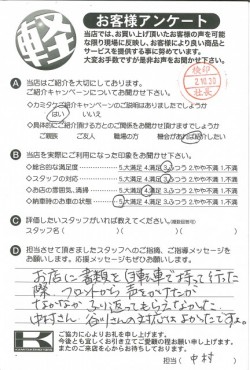 軽
お客様アンケート
当店では、お買い上げ頂いたお客様の声を可能な
限り現場に反映し、お客様により良い商品と
サービスを提供する事に努めています。
大変お手数ですが是非お声をお聞かせ下さい。
検印
2.10.30
社長
A 当店はご紹介を大切にしております。
ご紹介キャンペーンについてお聞かせ下さい。
・カミタケご紹介キャンペーンのご説明はありましたでしょうか
はい いいえ
・具体的にご紹介頂ける方とのご関係をお聞かせ頂けますでしょうか
ご親族 ご友人 職場の方 機会があれば
B 当店を実際にご利用になった印象をお聞かせ下さい。
・総合的な満足度 5.大満足 4.満足 3.ふつう 2.やや不満 1.不満
・スタッフの対応 5.大満足 4.満足 3.ふつう 2.やや不満 1.不満
・お店の雰囲気、清掃 5.大満足 4.満足 3.ふつう 2.やや不満 1.不満
・納車時のお車の状態 5.大満足 4.満足 3.ふつう 2.やや不満 1.不満
C 評価したいスタッフがいれば教えてください。
スタッフ名( )( )
D 担当させて頂きましたスタッフへのご指摘、ご指導メッセージを
お願いします。応援メッセージもぜひお願いします。
お店に書類を自転車で持って行った
際 フロントから声をかけたが
なかなかふり返ってもらえなかった。
中村さん、谷川さんの対応はよかったですよ。
ご協力に心よりお礼を申し上げます。
今後とも宜しくお引き立てご愛顧の程お願い申し上げます。
またのご来店を心からお待ちしております。
担当( 中村 )